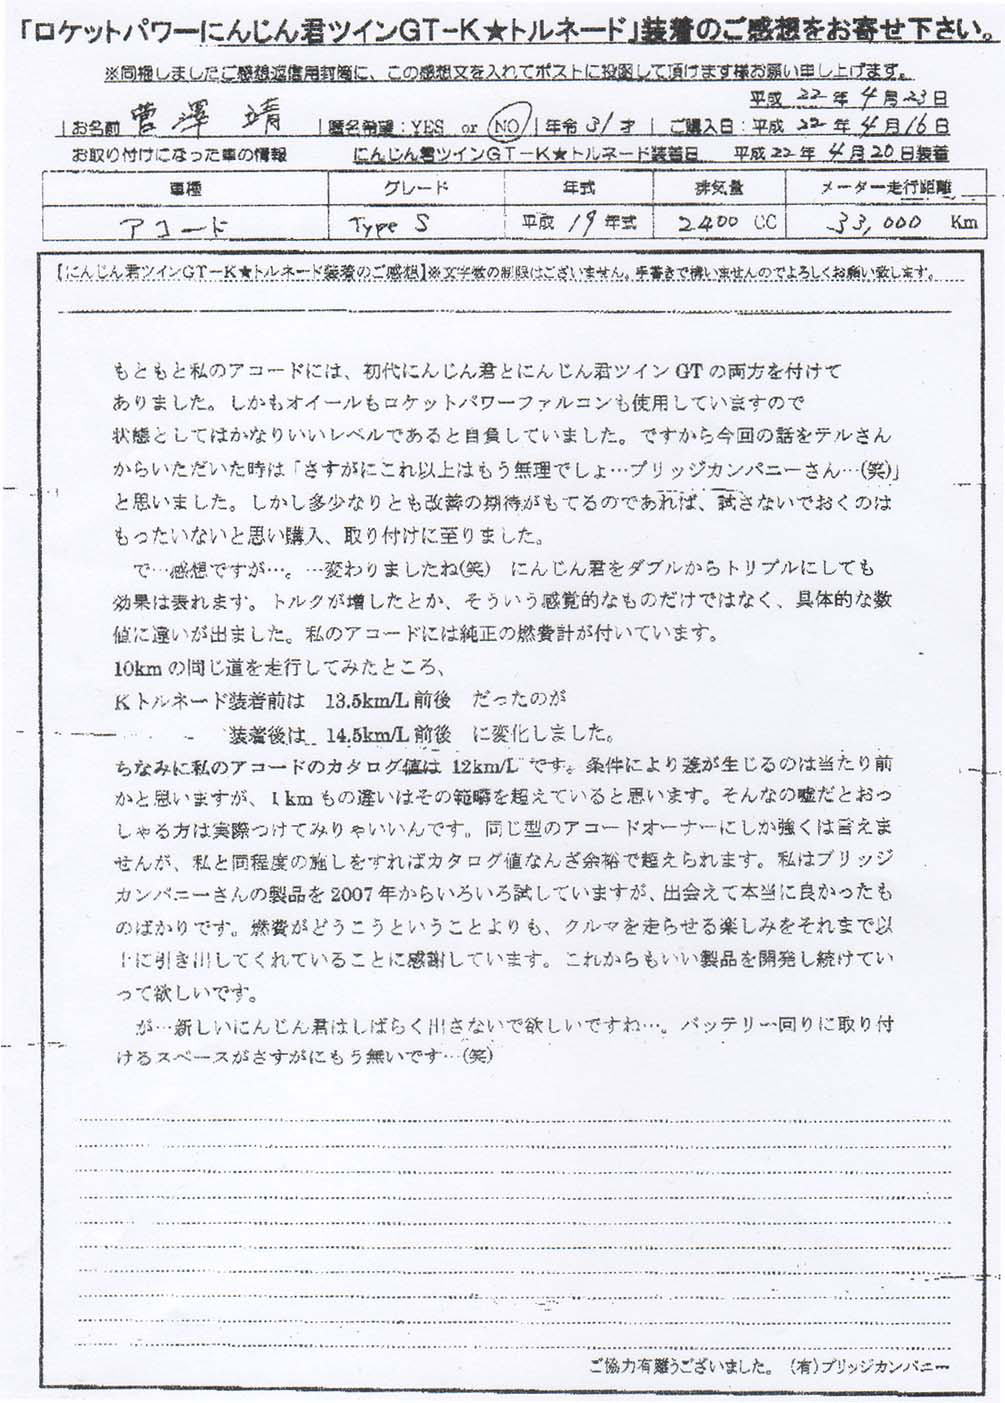 「ロケットパワーにんじん君ツインGT-K★トルネード」装着のご感想をお寄せ下さい。
※同梱しましたご感想返信用封筒に、この感想文を入れてポストに投函して頂けます様お願い申し上げます。
平成 22 年 4 月 23 日
お名前 菅澤 靖 匿名希望：YES or NO 年令 31 才 ご購入日：平成 22 年 4 月 16 日
お取り付けになった車の情報 にんじん君ツインGT-K★トルネード装着日 平成 22 年 4 月 20 日装着
車種 グレード 年式 排気量 メーター走行距離
アコード Type S 平成 19 年式 2400 CC 33,000 Km
【にんじん君ツインGT-K★トルネード装着のご感想】※文字数の制限はございません。手書きで構いませんのでよろしくお願い致します。
もともと私のアコードには、初代にんじん君とにんじん君ツインGTの両方を付けて
ありました。しかもオイールもロケットパワーファルコンも使用していますので
状態としてはかなりいいレベルであると自負していました。ですから今回の話をテルさん
からいただいた時は「さすがにこれ以上はもう無理でしょ…ブリッジカンパニーさん…(笑)」
と思いました。しかし多少なりとも改善の期待がもてるのであれば、試さないでおくのは
もったいないと思い購入、取り付けに至りました。
で…感想ですが…。…変わりましたね(笑) にんじん君をダブルからトリプルにしても
効果は表れます。トルクが増したとか、そういう感覚的なものだけではなく、具体的な数
値に違いが出ました。私のアコードには純正の燃費計が付いています。
10kmの同じ道を走行してみたところ、
Kトルネード装着前は 13.5km/L前後 だったのが
装着後は 14.5km/L前後 に変化しました。
ちなみに私のアコードのカタログ値は 12km/L です。条件により差が生じるのは当たり前
かと思いますが、1kmもの違いはその範疇を超えていると思います。そんなの嘘だとおっ
しゃる方は実際つけてみりゃいいんです。同じ型のアコードオーナーにしか強くは言えま
せんが、私と同程度の施しをすればカタログ値なんざ余裕で超えられます。私はブリッジ
カンパニーさんの製品を2007年からいろいろ試していますが、出会えて本当に良かったも
のばかりです。燃費がどうこうということよりも、クルマを走らせる楽しみをそれまで以
上に引き出してくれていることに感謝しています。これからもいい製品を開発し続けてい
って欲しいです。
が…新しいにんじん君はしばらく出さないで欲しいですね…。バッテリー回りに取り付
けるスペースがさすがにもう無いです…(笑)
ご協力有難うございました。 (有)ブリッジカンパニー